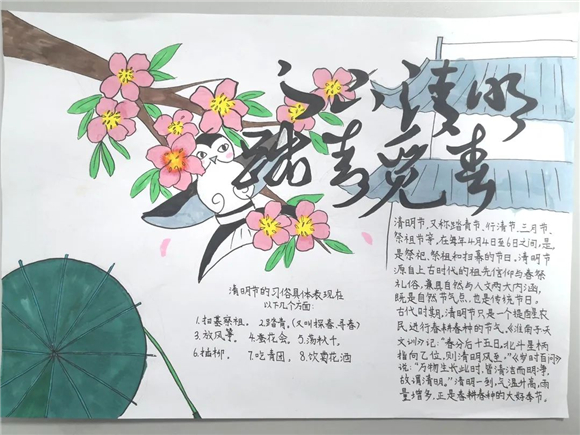 清明
踏青觅春
清明节的习俗具体表现在
以下几个方面:
1.扫墓祭祖。 2.踏青。(又叫探春、寻春)
3.放风筝。 4.蚕花会。 5.荡秋千。
6.插柳。 7.吃青团。 8.饮菊花酒
清明节,又称踏青节、行清节、三月节、
祭祖节等,在每年4月4日至6日之间,是
是祭祀、祭祖和扫墓的节日。清明节
源自上古时代的祖先信仰与春祭
礼俗,兼具自然与人文两大内涵,
既是自然节气点,也是传统节日。
古代时期,清明节只是一个提醒农
民进行春耕春种的节气。《淮南子·天
文训》记:“春分后十五日,北斗星柄
指向乙位,则清明风至。”《岁时百问》
说:“万物生长此时,皆清洁而明净,
故谓清明。”清明一到,气温升高,雨
量增多,正是春耕春种的大好季节。